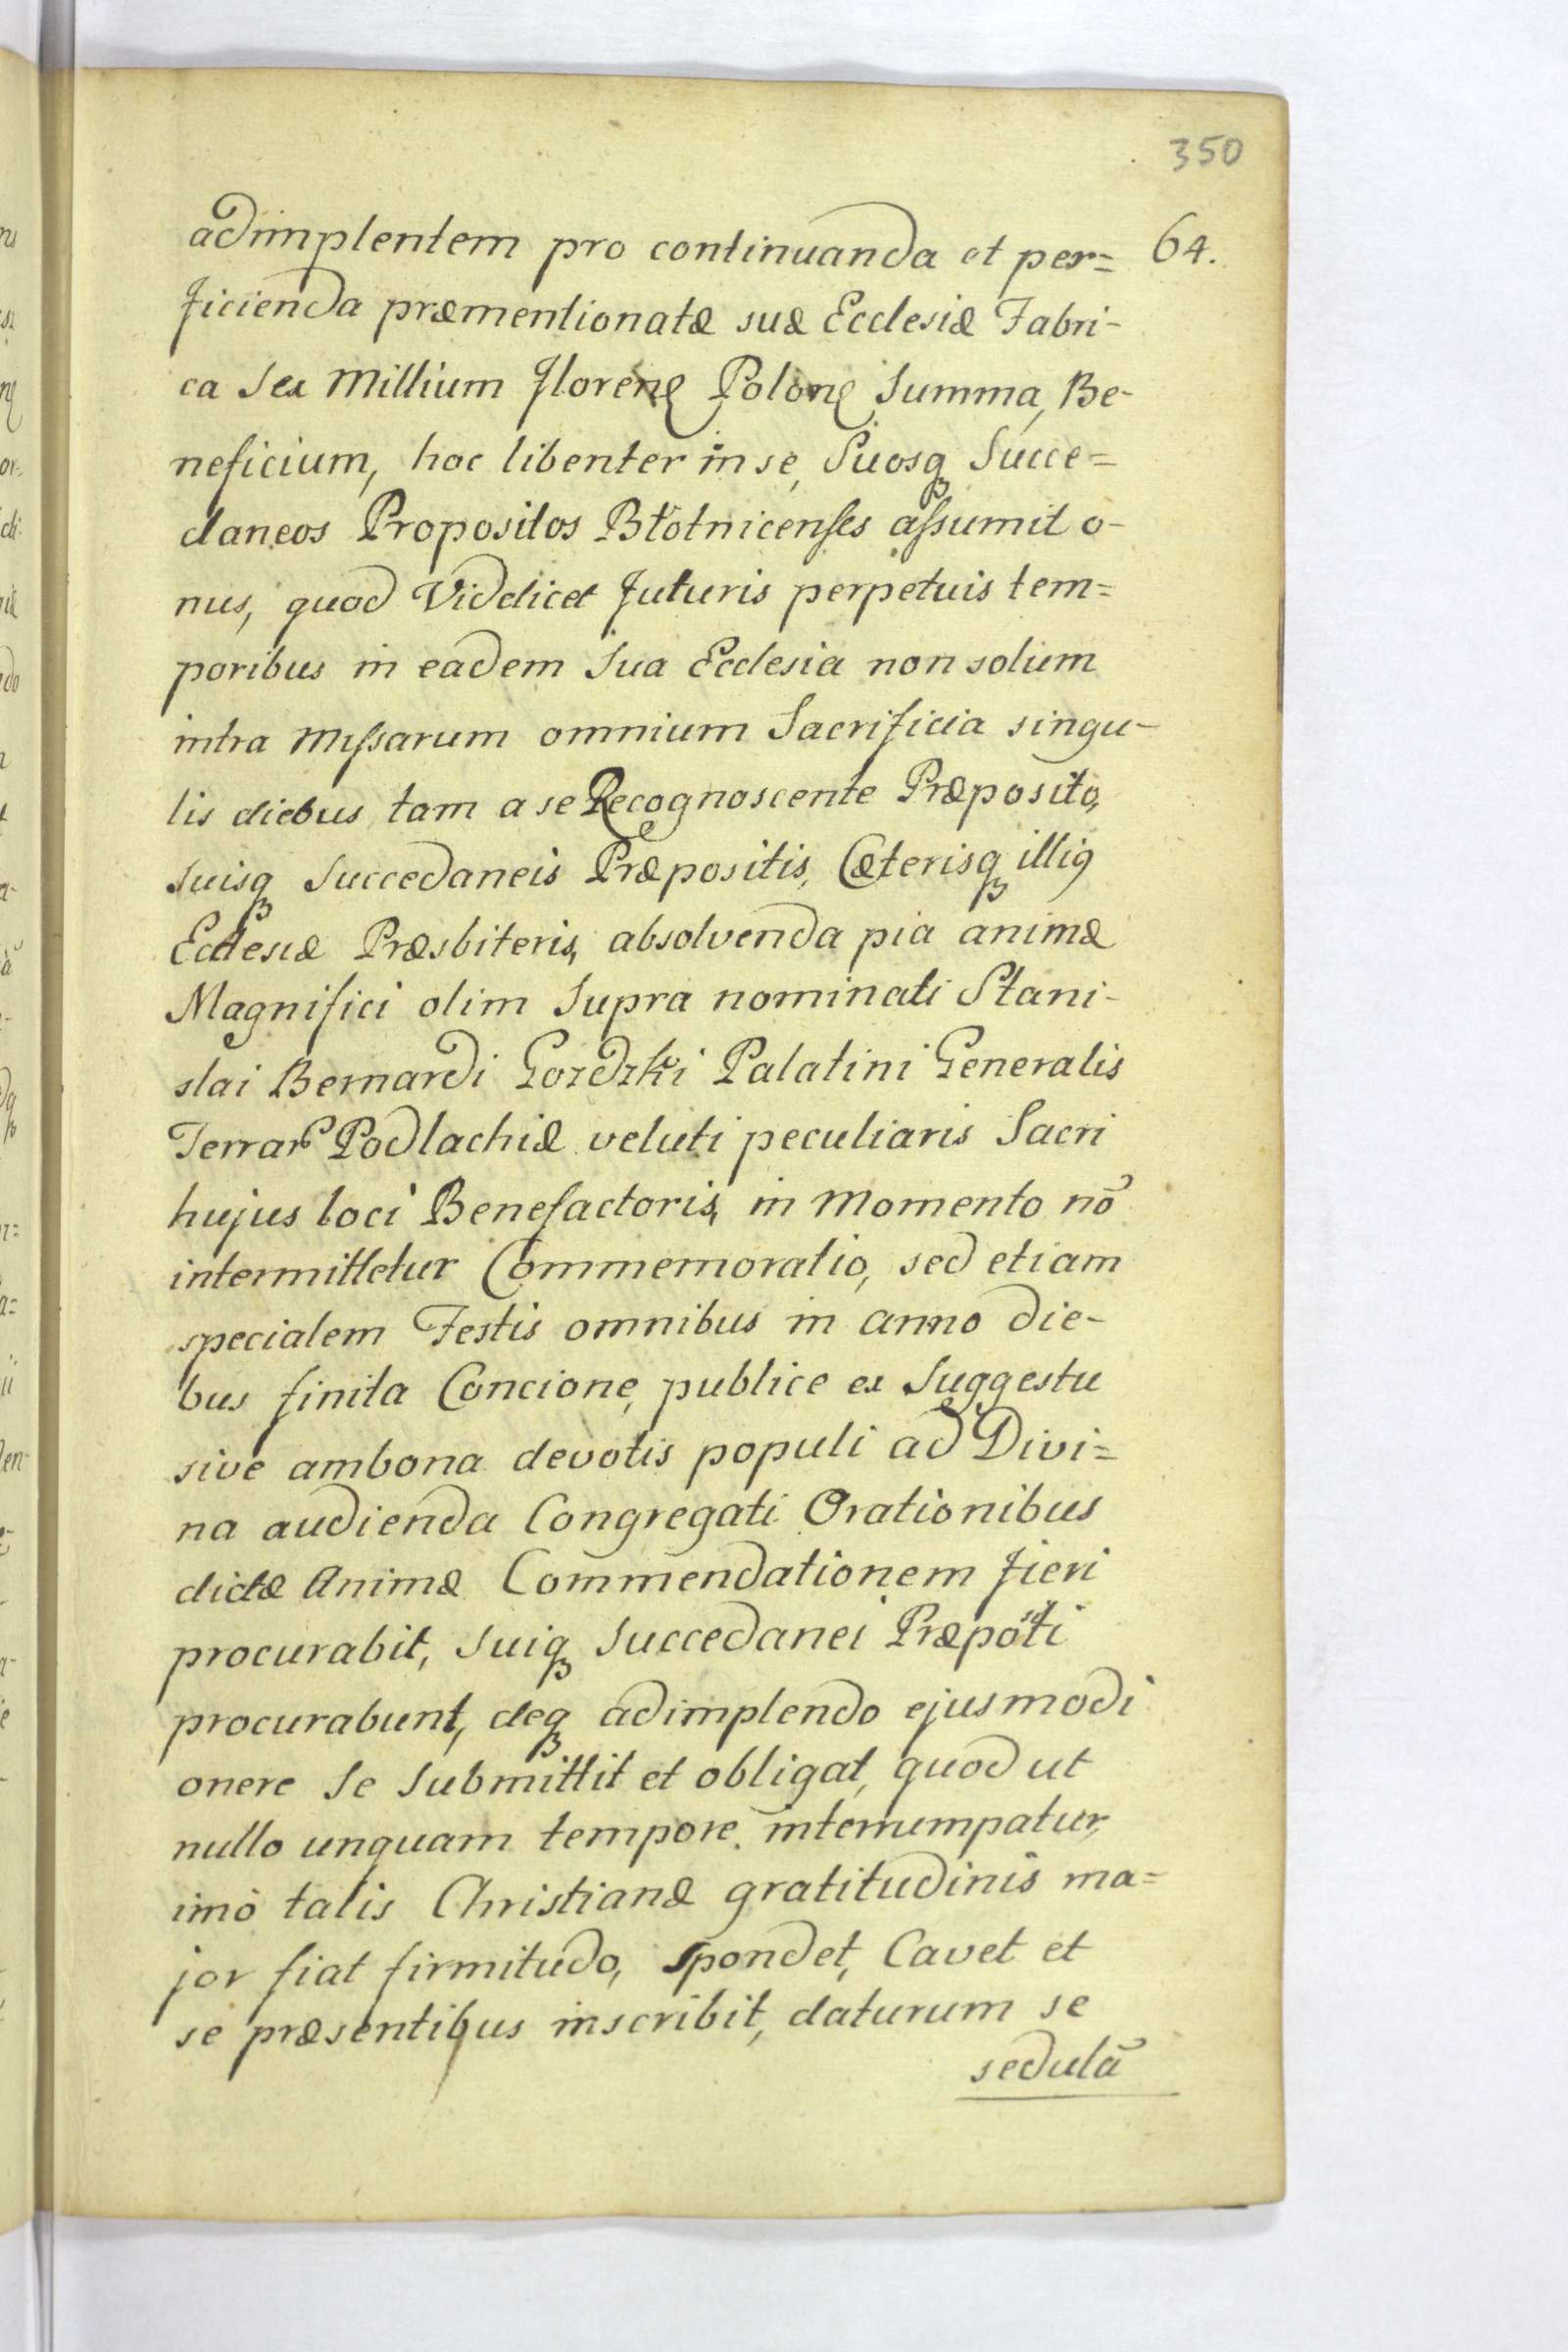 350
64.
adimplentem pro continuanda et per=
ficienda præmentionatæ suæ Ecclesiæ Fabri-
ca Sex Millium floren Polon Summa, Be-
neficium, hoc libenter in se, Suosq Succe=
daneos Propositos Błotnicenses aſsumit o-
nus, quod Videlicet futuris perpetuis tem=
poribus in eadem Sua Ecclesia non solum
intra Miſsarum omnium Sacrificia singu-
lis diebus, tam a se Recognoscente Præposito,
Suisq Succedaneis Præpositis, Cæterisq illig
Ecclesiæ Præsbiteris, absolvenda pia animæ
Magnifici olim Supra nominati Stani-
slai Bernardi Gozdzki Palatini Generalis
Terrar Podlachiæ veluti peculiaris Sacri
hujus loci Benefactoris, in Momento nō
intermittetur Commemoratio, sed etiam
specialem Festis omnibus in anno die-
bus finita Concione, publice ex Suggestu
sive ambona devotis populi ad Divi=
na audienda Congregati Orationibus
dictæ Animæ Commendationem fieri
procurabit, Suiq Succedanei Præpoti
procurabunt, deq adimplendo ejusmodi
onere Se Submittit et obligat, quod ut
nullo unquam tempore interrumpatur,
imò talis Christianæ gratitudinis ma=
jor fiat firmitudo, Spondet, Cavet et
se præsentibus inscribit, daturum se
sedulā